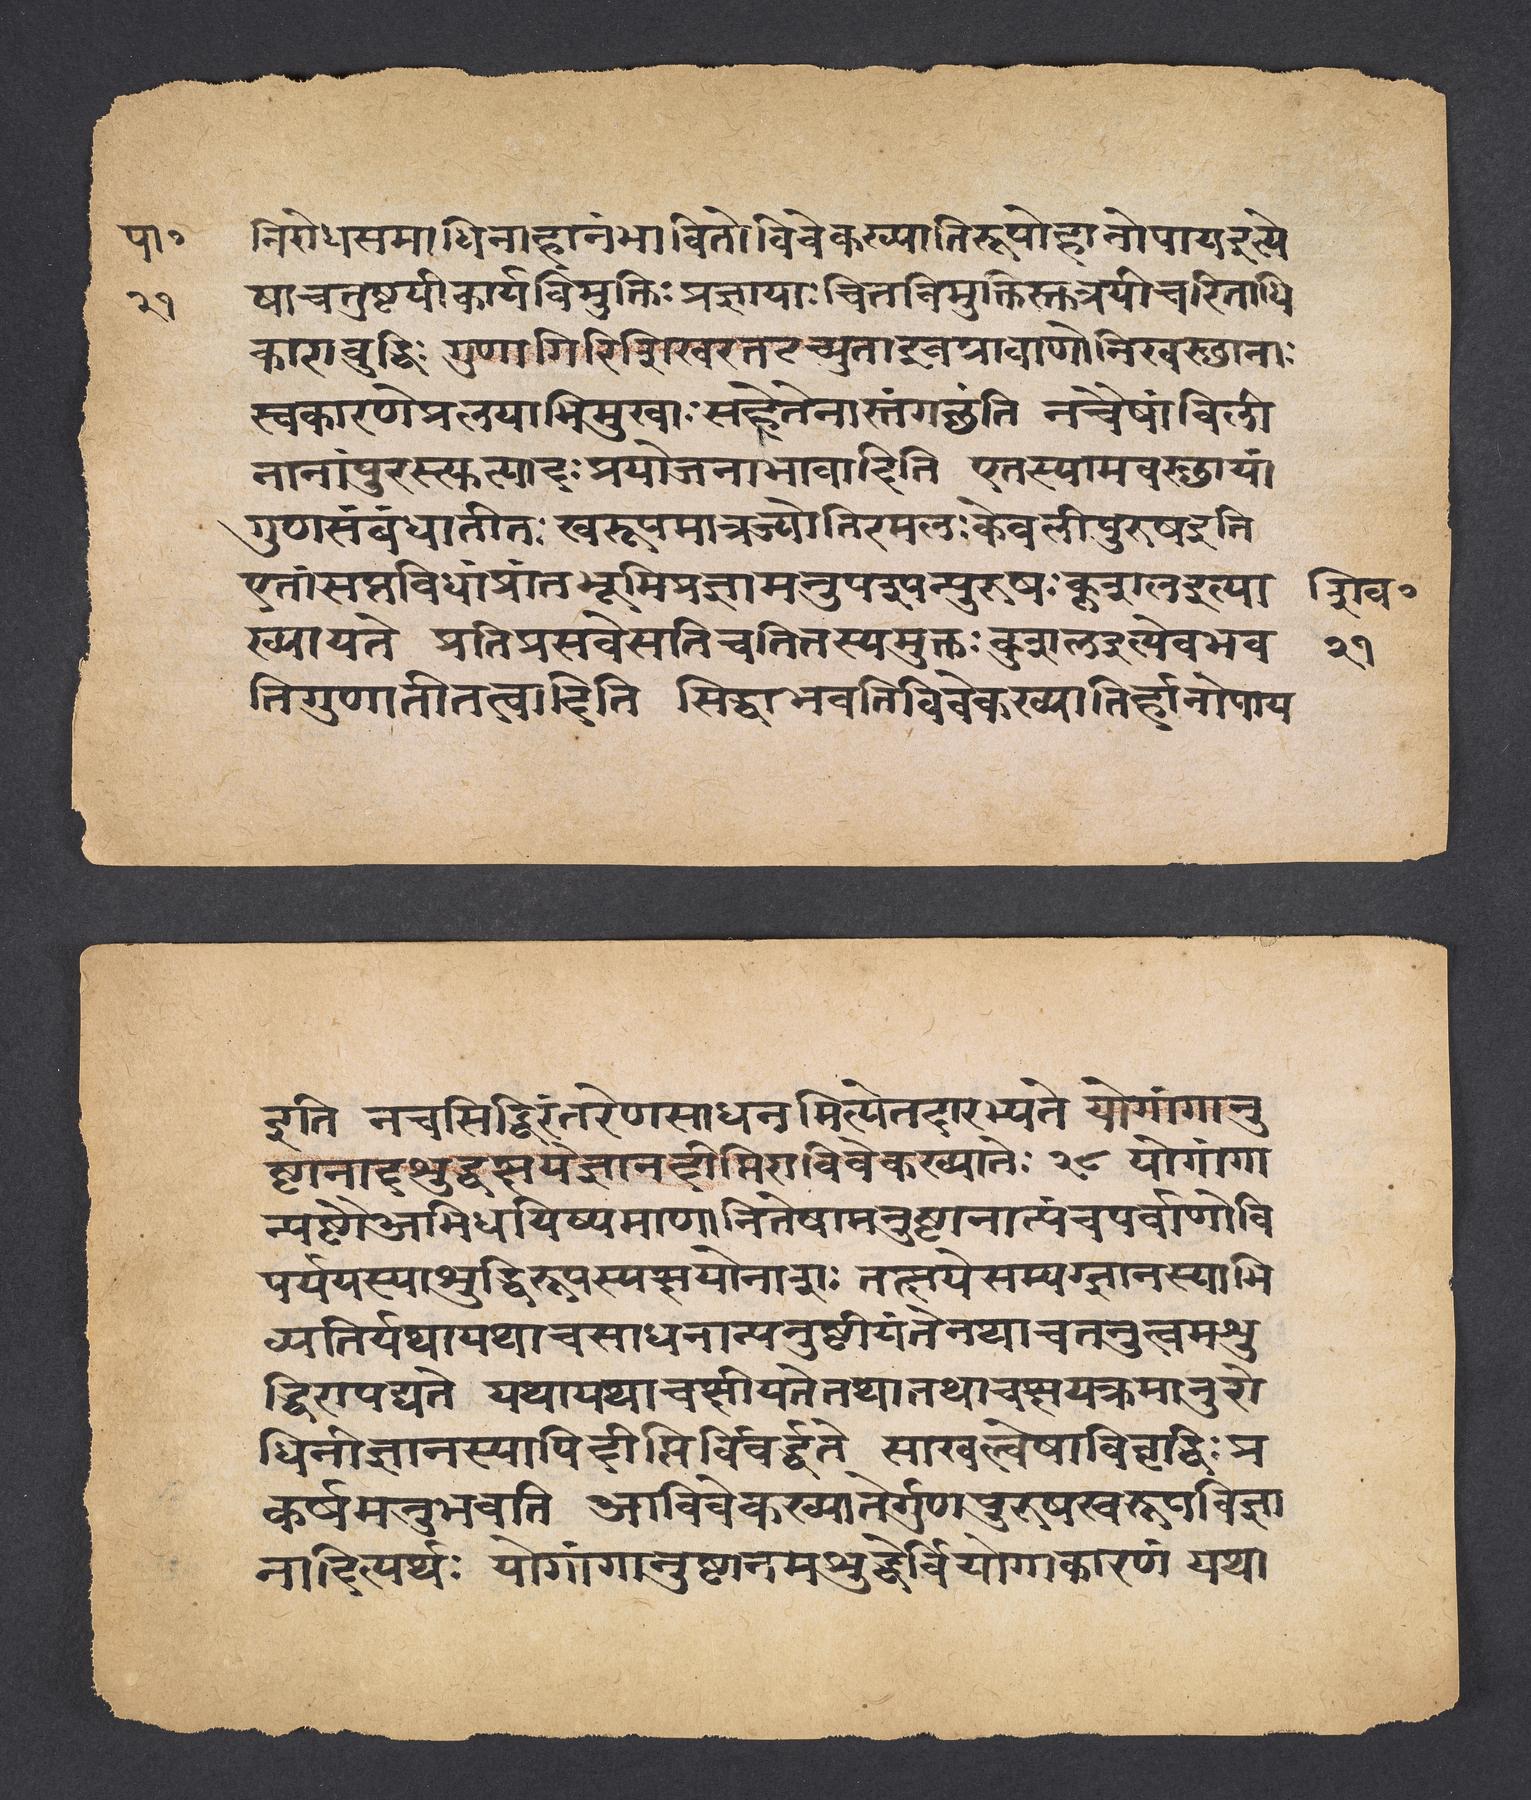 पा॰
२१
निरोधसमाधिनाहानंभावितोविवेकख्यातिरूपोहानोपायइत्ये
षाचतुष्टयीकार्यविमुक्तिः प्रज्ञायाः चित्तविमुक्तिस्तुत्रयीचरिताधि
काराबुद्धिः गुणागिरिशिखरतटच्युताइवग्रावाणोनिरवस्छानाः
स्वकारणेप्रलयाभिमुखाः सहतेनास्तंगछंति नचैषांविली
नानांपुरस्त्यत्पादः प्रयोजनाभावादिति एतस्यामवस्छायां
गुणसंबंधातीतः स्वरूपमात्रज्योतिरमलः केवलीपुरुषइति
एतांसप्तविधांप्रांतभूमिप्रज्ञामनुपश्यन्पुरुषः कूशलइत्या
ख्यायते प्रतिप्रसवेसतिचतितस्यमुक्तः कुशलइत्येवभव
तिगुणातीतत्वादिति सिद्धाभवतिविवेकख्यातिर्हानोपाय
शिव॰
२१
इति नचसिद्धिरंतरेणसाधनमित्येतदारभ्यते योगांगानु
ष्ठानादशुद्धक्षयेज्ञानदीप्तिराविवेकख्यातेः २८ योगांगा
न्यष्टौअभिधायिष्यमाणानितेषामनुष्ठानात्पंचपर्वाणोवि
पर्ययस्याशुद्धिरूपस्यक्षयोनाशः तत्क्षयेसम्यग्ज्ञानस्याभि
व्यक्तिर्यथायथाचसाधनान्यनुष्ठीयंतेतथाचतनुत्वमशु
द्धिरापद्यते यथायथाचक्षीयतेतथातथाचक्षयक्रमानुरो
धिनीज्ञानस्यापिदीप्तिर्विवर्द्धते साखल्वेषाविवृद्धिः प्र
कर्षमनुभवति आविवेकख्यातेर्गुणपुरुषस्वरूपविज्ञा
नादित्यर्थः योगांगानुष्ठानमशुद्धेर्वियोगाकारणं यथा